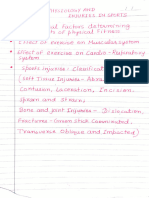 PHYSIOLOGY AND
INJURIES IN SPORTS
Physiological factors determining
components of physical Fitness.
• Effect of exercise on Muscular system
• Effect of Exercise on Cardio - Respiratory
system
• Sports injuries - Classification
Soft Tissue Injuries - Abrasion
Contusion, Laceration, Incision,
Sprain and strain
Bone and joint Injuries - Dislocation,
Fractures - Green stick Comminuted,
Transverse Oblique and Impacted)